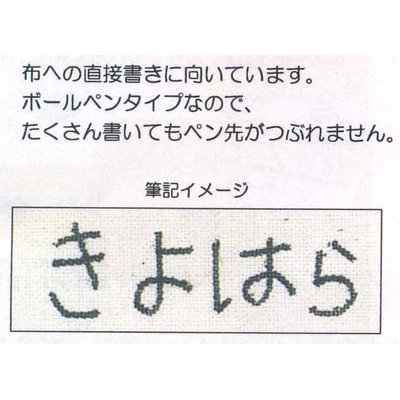 布への直接書きに向いています。
ボールペンタイプなので、
たくさん書いてもペン先がつぶれません。
筆記イメージ
きよはら